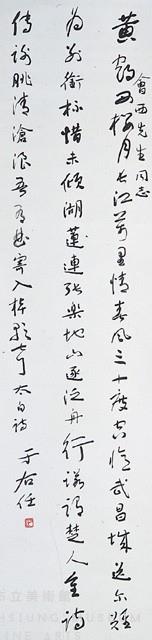 會西先生同志
黃鶴西樓月長江萬里情春風三十度空憶武昌城送尔難
為別銜杯惜未傾湖蓮連張樂地山逐泛舟行諾謂楚人重詩
傳謝朓清滄浪吾有曲寄入棹歌聲 太白詩 于右任
市立美術館
HSIUNG MUSEUM
FINE ARTS